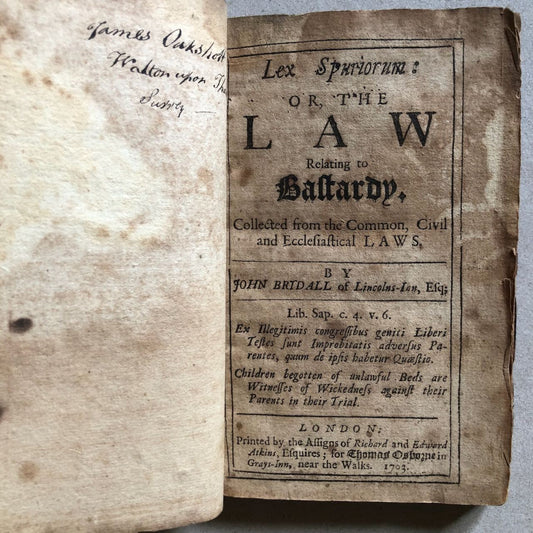 James Oakshott
Walton upon Tha
Surrey
Lex Spuriorum:
OR, THE
LAW
Relating to
Baſtardy.
Collected from the Common, Civil
and Eccleſiaſtical LAWS.
BY
JOHN BRYDALL of Lincolns-Inn, Eſq;
Lib. Sap. c. 4. v. 6.
Ex Illegitimis congreſſibus geniti Liberi
Teſtes ſunt Improbitatis adverſus Pa-
rentes, quum de ipſis habetur Quæſtio.
Children begotten of unlawful Beds are
Witneſſes of Wickedneſs againſt their
Parents in their Trial.
LONDON:
Printed by the Aſſigns of Richard and Edward
Atkins, Eſquires; for Thomas Osborne in
Grays-Inn, near the Walks. 1703.